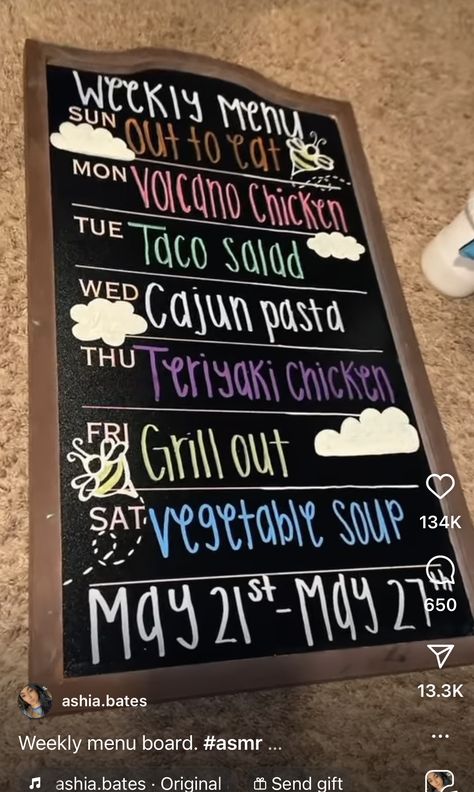 Weekly Menu
SUN out to eat
MON Volcano Chicken
TUE Taco Salad
WED Cajun pasta
THU Teriyaki Chicken
FRI Grill out
SAT Vegetable Soup
May 21st - May 27th
134K
650
13.3K
ashia.bates
Weekly menu board. #asmr ...
ashia.bates · Original
Send gift